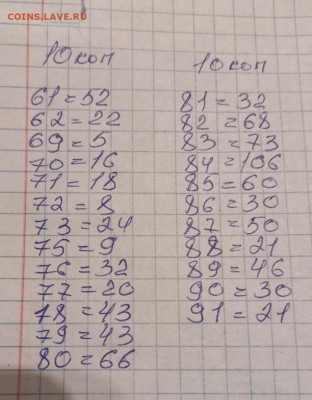 COINS.LAVE.RU
10 коп
61=52
62=22
69=5
70=16
71=18
72=8
73=24
75=9
76=32
77=20
78=43
79=43
80=66
10 коп
81=32
82=68
83=73
84=106
85=60
86=30
87=50
88=21
89=46
90=30
91=21